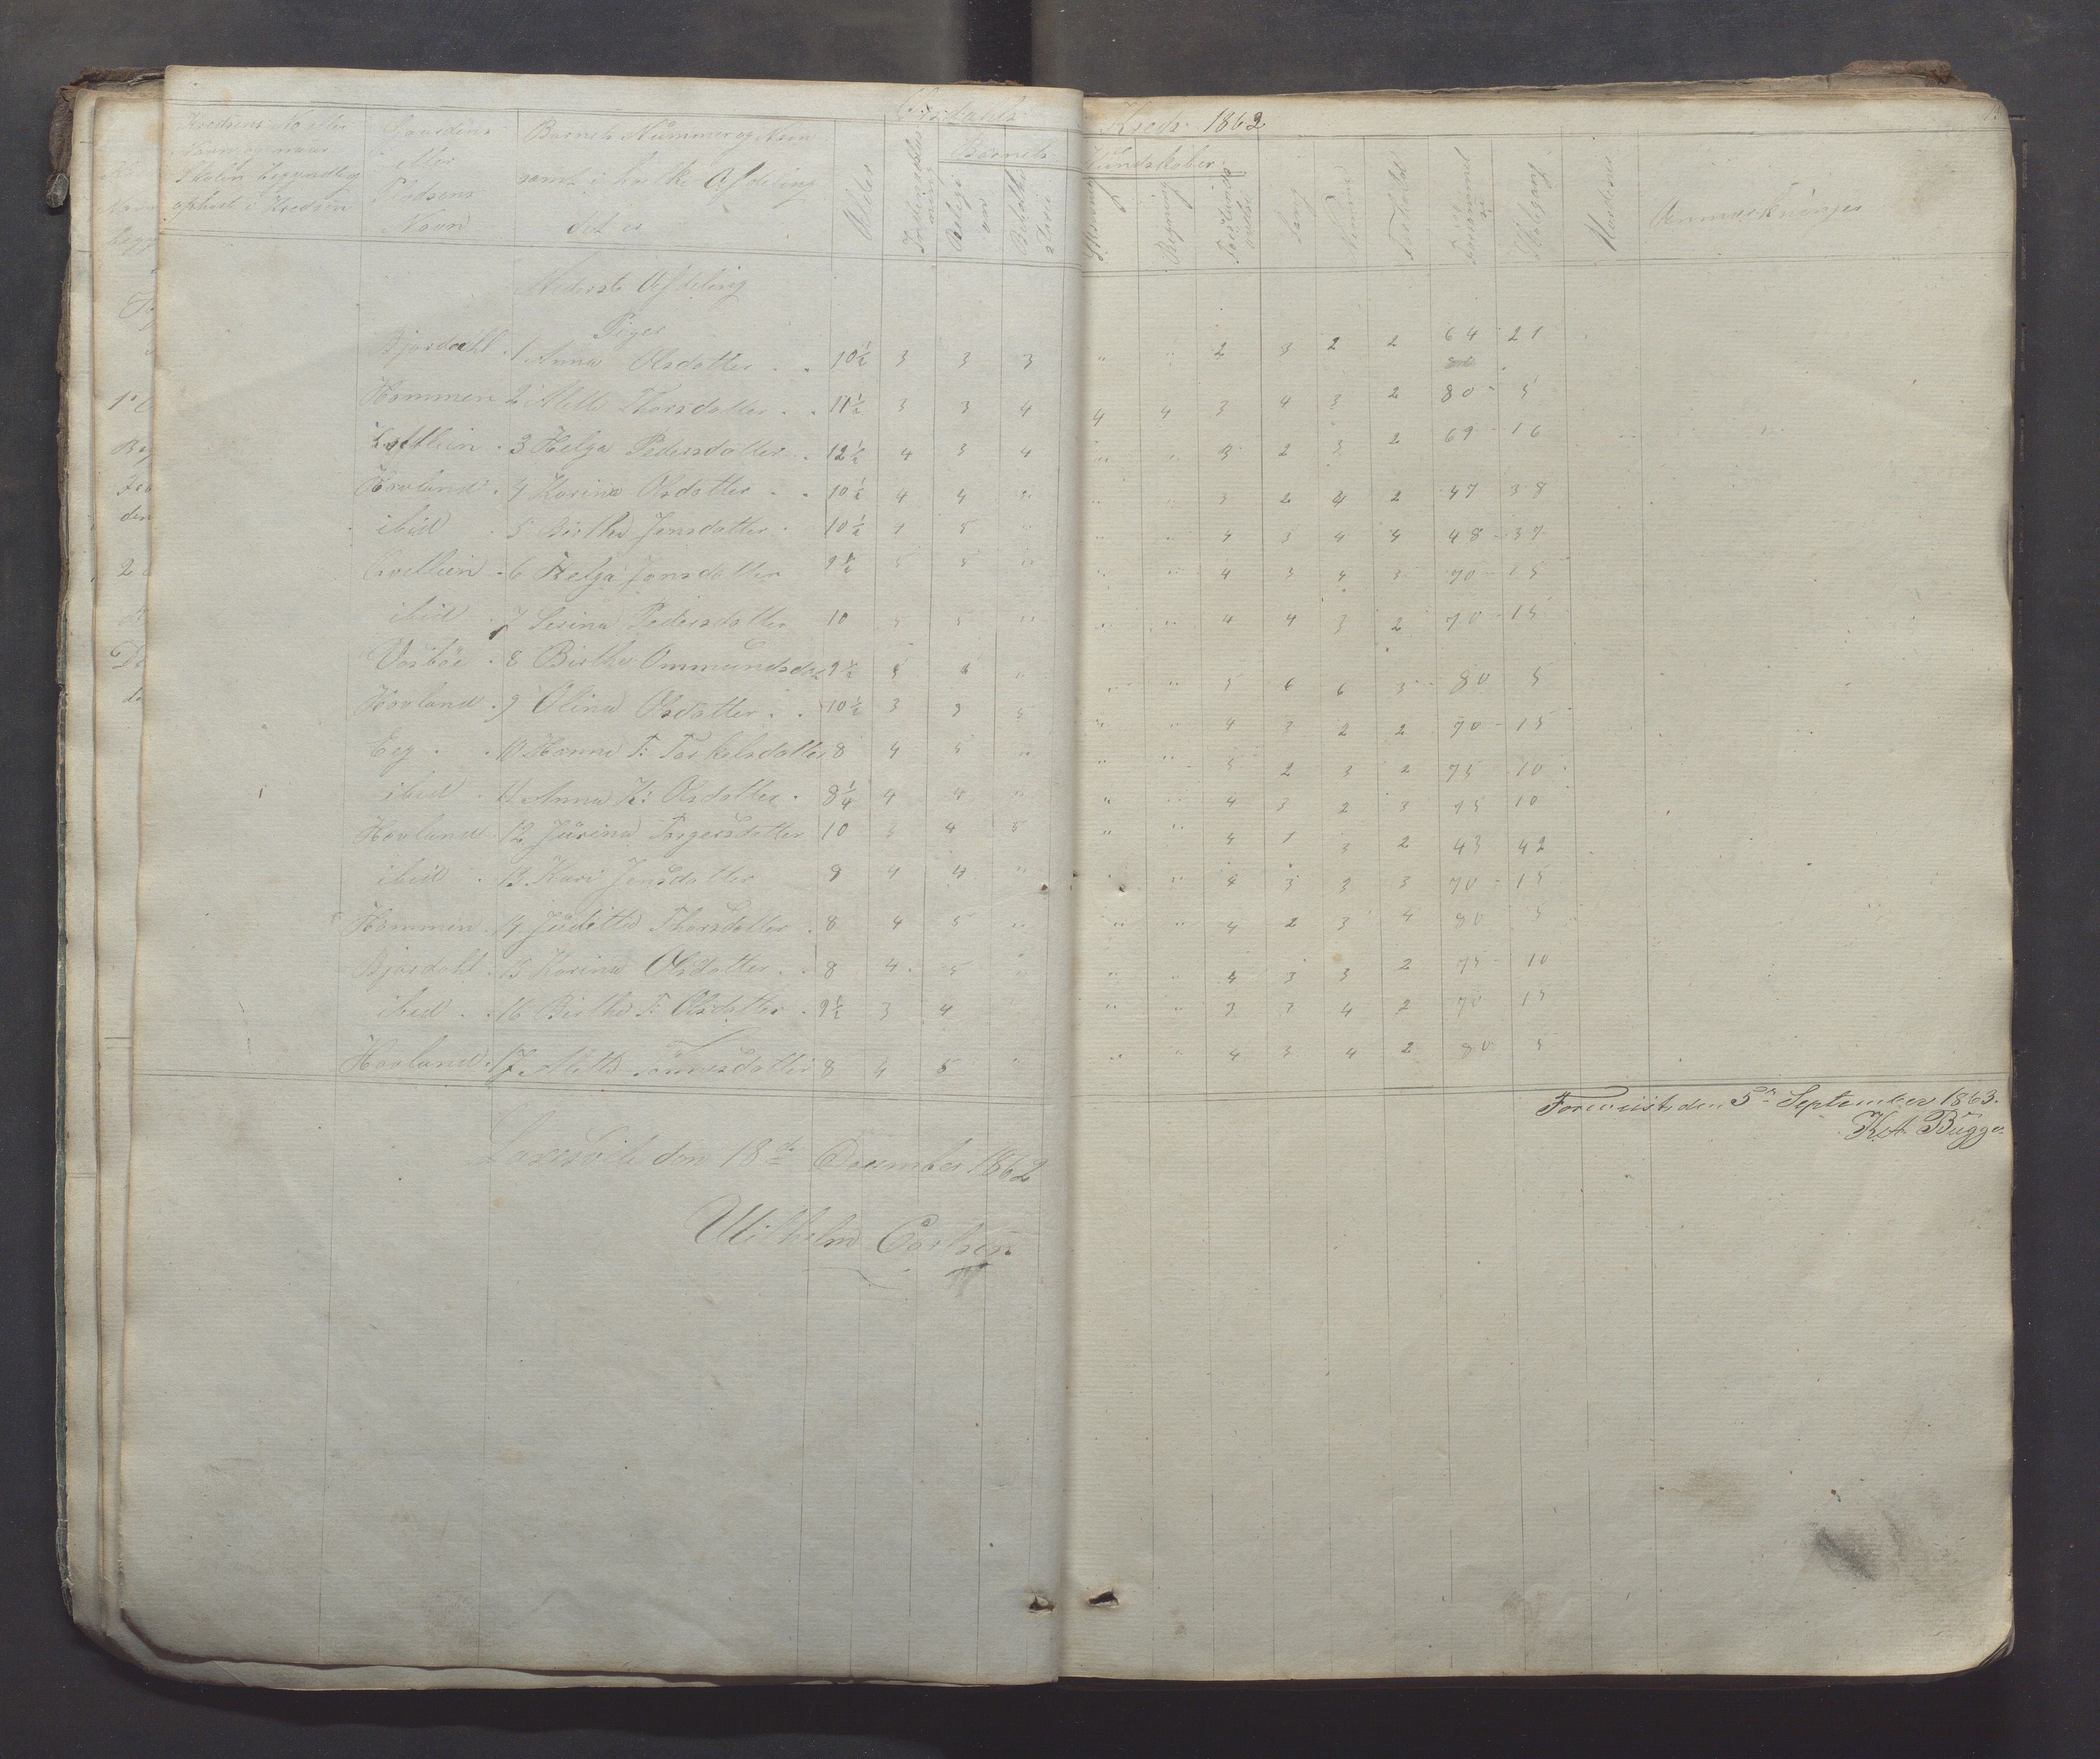 Kreds 1862
Kredsens No eller
Navn og naar
Skolen begyndte og
ophørte i Kredsen
Gaardens
eller
Pladsens
Navn
Barnets Nummer og Navn
samt i hvilke Afdeling
det er
Alder
Barnets Kundskaber
Religi
on
Skrivning
Regning
Sang
Forhold
Skolegang
Anmærkninger
Nederste Afdeling
Piger
Bjordahl 1 Anna Olsdatter 10½ 3 3 3 " " 2 3 2 2 64 21
Hammen 2 Mette Thorsdatter 11½ 3 3 4 4 4 3 4 3 2 80 5
3 Helga Pedersdatter 12½ 4 3 4 " " 3 2 3 2 69 16
Hovland 4 Karina Olsdatter 10½ 4 4 " " 3 2 4 2 47 38
ibid 5 Birthe Jensdatter 10½ 4 5 " " " 4 3 4 4 48 37
6 Helga Jonsdatter 9½ 5 5 " " " 4 3 4 3 70 15
ibid 7 Serina Pedersdatter 10 5 5 " " " 4 4 3 2 70 15
Vasbøe 8 Birthe Ommundsdat 9½ 5 " " " 5 6 6 3 80 5
Hovland 9 Olina Olsdatter 10½ 3 3 5 " " 4 3 2 2 70 15
Eeg 10 Hanne T: Torkelsdatter 8 4 5 " " " 5 2 3 2 75 10
ibid 11 Anna K: Olsdatter 8¼ 4 4 " " " 4 3 2 3 75 10
Hovland 12 Jürina Torgersdatter 10 3 4 5 " " 4 1 3 2 43 42
ibid 13 Kari Jensdatter 8 4 4 " " " 4 3 3 3 70 15
Hammen 14 Jüditte Thorsdatter 8 4 5 " " " 4 2 3 4 80 5
Bjordahl 15 Karina Olsdatter 8 4 5 " " " 4 3 3 2 75 10
ibid 16 Birthe T: Olsdatter 9½ 3 4 " " 3 3 4 2 70 15
Hovland 17 Mette Tønnesdatter 8 4 5 " " " 4 3 4 2 80 5
Foreviist den 5te September 1863.
K A Bugge
den 18de December 1862
Wilhelm Carlsen